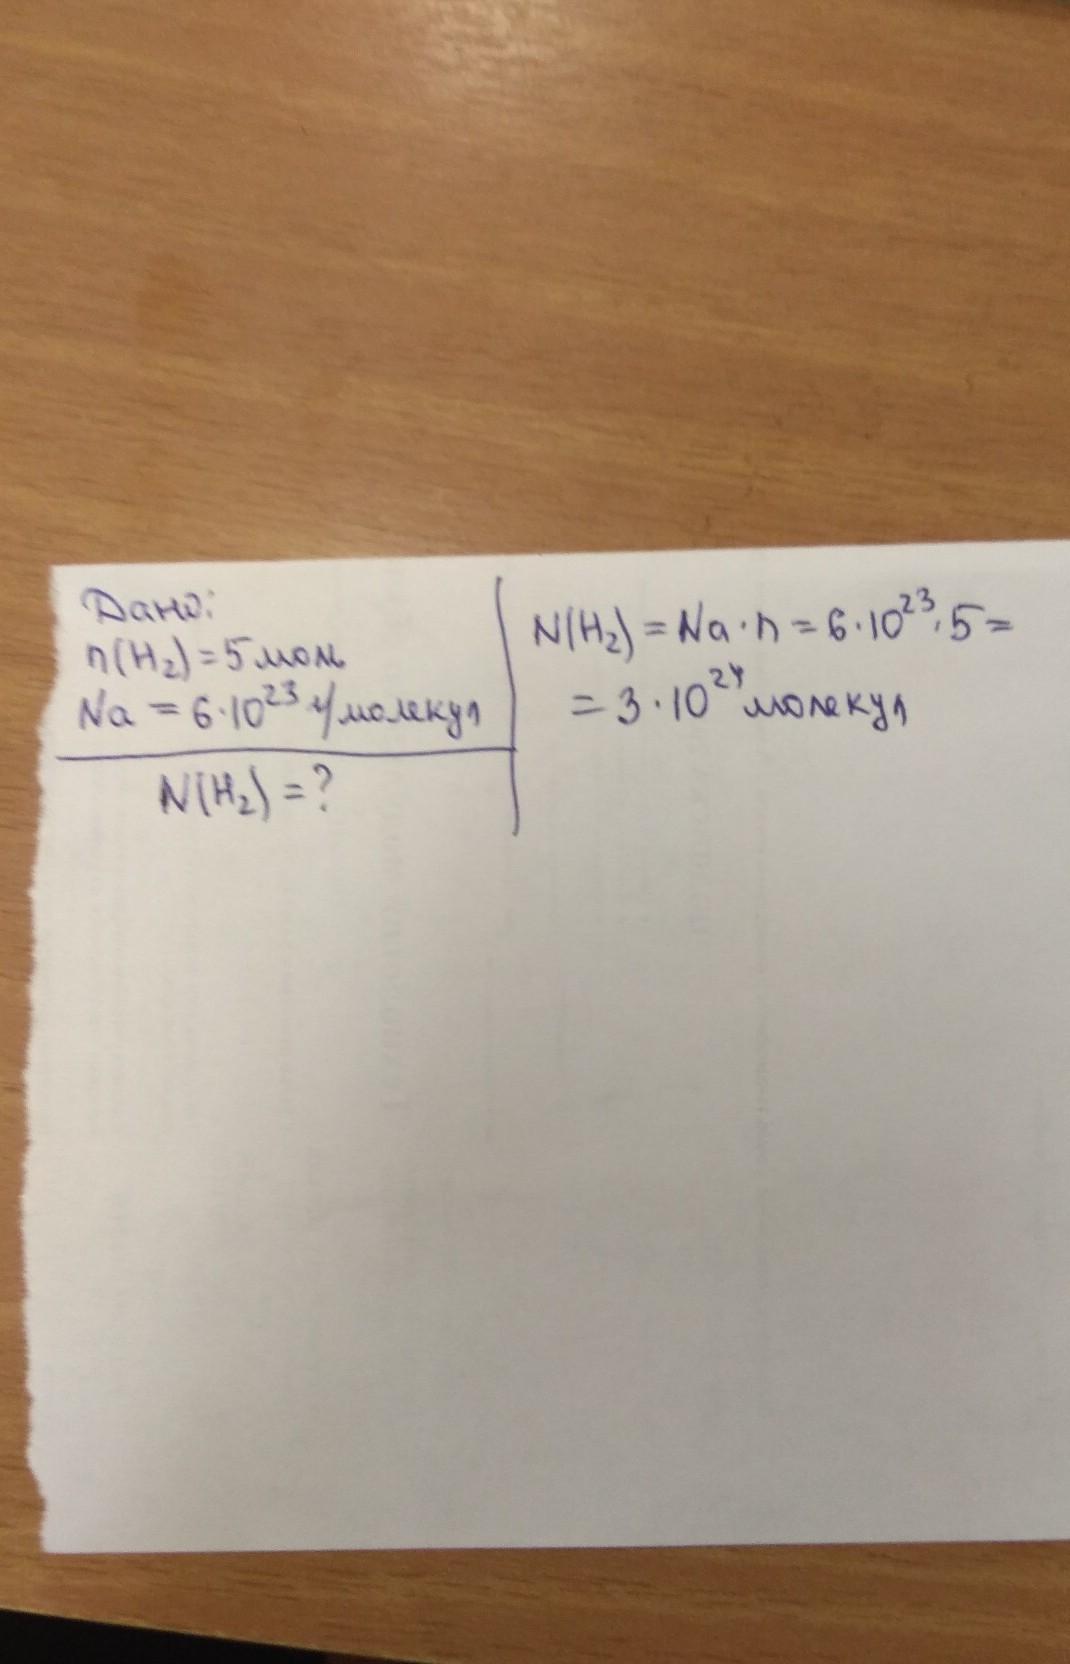 Дано:
n(H₂) = 5 моль
Na = 6·10²³ 1/молекул
N(H₂) = ?
N(H₂) = Na·n = 6·10²³·5 =
= 3·10²⁴ молекул